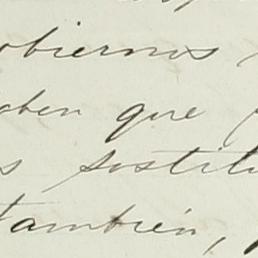 obiernos
oben que
s sostitu
también,